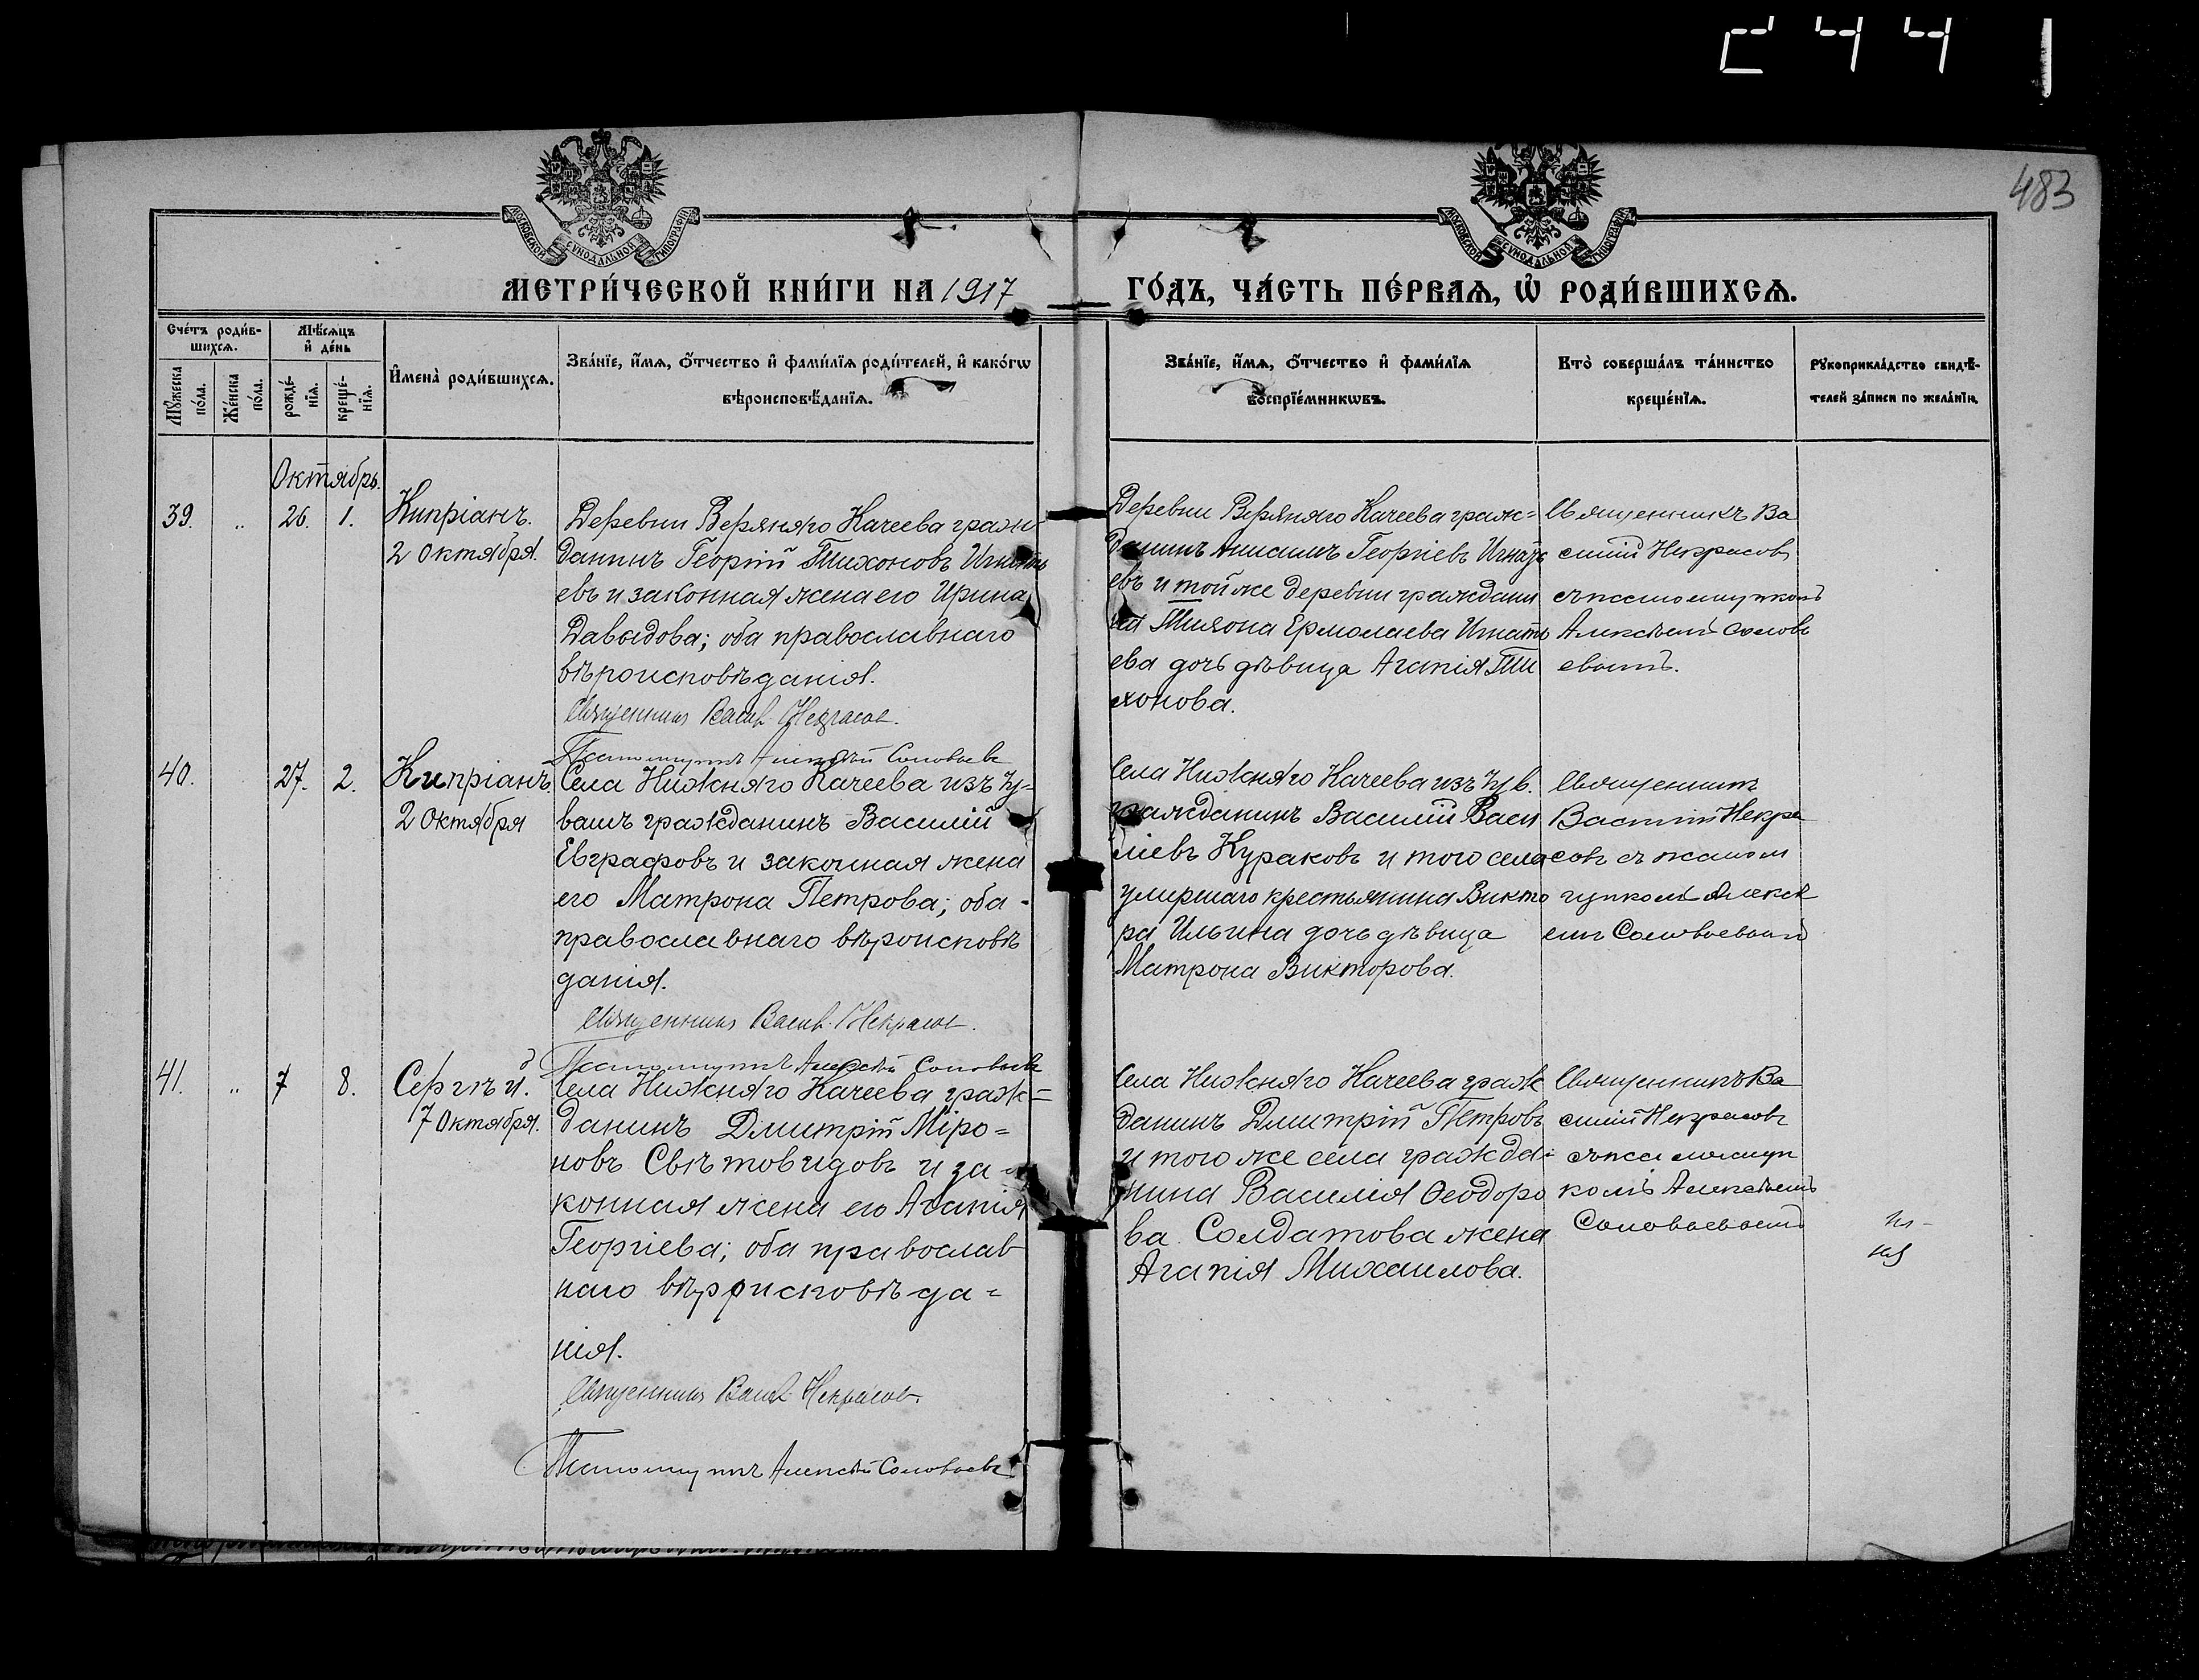 2441
483
МОСКОВСКОЙ СѴНОДАЛЬНОЙ ТИПОГРАФІИ
МОСКОВСКОЙ СѴНОДАЛЬНОЙ ТИПОГРАФІИ
МЕТРИ́ЧЕСКОЙ КНИ́ГИ НА 1917 ГО́ДЪ, ЧА́СТЬ ПЕ́РВАѦ, Ѡ҆ РОДИ́ВШИХСѦ.
Сче́тъ роди́в-
шихсѧ.
Мꙋ́жеска
по́ла.
Же́нска
по́ла.
Мѣ́сѧцъ
и҆ де́нь
рожде́-
нїѧ.
креще́-
нїѧ.
И҆мена̀ роди́вшихсѧ.
Зва́нїе, и҆́мѧ, ѻ҆́тчество и҆ фами́лїѧ роди́телей, и҆ како́гѡ
вѣроисповѣ́данїѧ.
Зва́нїе, и҆́мѧ, ѻ҆́тчество и҆ фами́лїѧ
воспрїе́мникѡвъ.
Кто̀ соверша́лъ та́инство
креще́нїѧ.
Рꙋкоприкла́дство свидѣ́-
телей за́писи по жела́нїю.
Октябрь.
39. „ 26. 1.
Кипріанъ.
2 Октября.
Деревни Верхняго Качеева граж-
данинъ Георгій Тихоновъ Игнать
евъ и законная жена его Ирина
Давыдова; оба православнаго
вѣроисповѣданія.
Священникъ Васил. Некрасов.
Псаломщикъ Алексѣй Соловьевъ
Деревни Верхняго Качеева граж=
данинъ Георгіевъ Игнать
евъ и той же деревни граждани
на Тихона Ермолаева Игнать
ева дочь дѣвица Агапія Ти
хонова.
Священникъ Ва
силій Некрасовъ
съ псаломщикомъ
Алексѣемъ Соловь
евымъ.
40. 27. 2.
Кипріанъ
2 Октября
Села Нижняго Качеева изъ чу-
вашъ гражданинъ Василій
Евграфовъ и законная жена
его Матрона Петрова; оба -
православнаго вѣроисповѣ
данія.
Священникъ Васил. Некрасов.
Псаломщикъ Алексѣй Соловьевъ
Села Нижняго Качеева изъ чув.
гражданинъ Василій Васи
ліевъ Кураковъ и того села
умершаго крестьянина Викто
ра Ильина дочь дѣвица
Матрона Викторова.
Священникъ
Василій Некра
совъ съ псалом
щикомъ Алексѣ
емъ Соловьевымъ
41. „ 7 8.
Сергѣй.
7 Октября.
Села Нижняго Качеева граж=
данинъ Дмитрій Міро=
новъ Свѣтовидовъ и за-
конная жена его Агапія
Георгіева; оба православ
наго вѣроисповѣда=
нія.
Священникъ Васил. Некрасов.
Псаломщикъ Алексѣй Соловьевъ
Села Нижняго Качеева граж
данинъ Дмитрій Петровъ
и того же села гражда-
нина Василія Ѳеодоро
ва Солдатова жена
Агапія Михаилова.
Священникъ Ва
силій Некрасовъ
съ псаломщи
комъ Алексѣемъ
Соловьевымъ